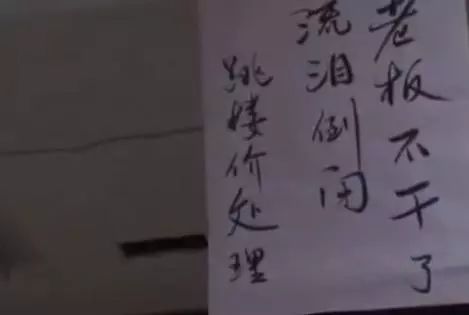 老板不干了
流泪倒闭
跳楼价处理